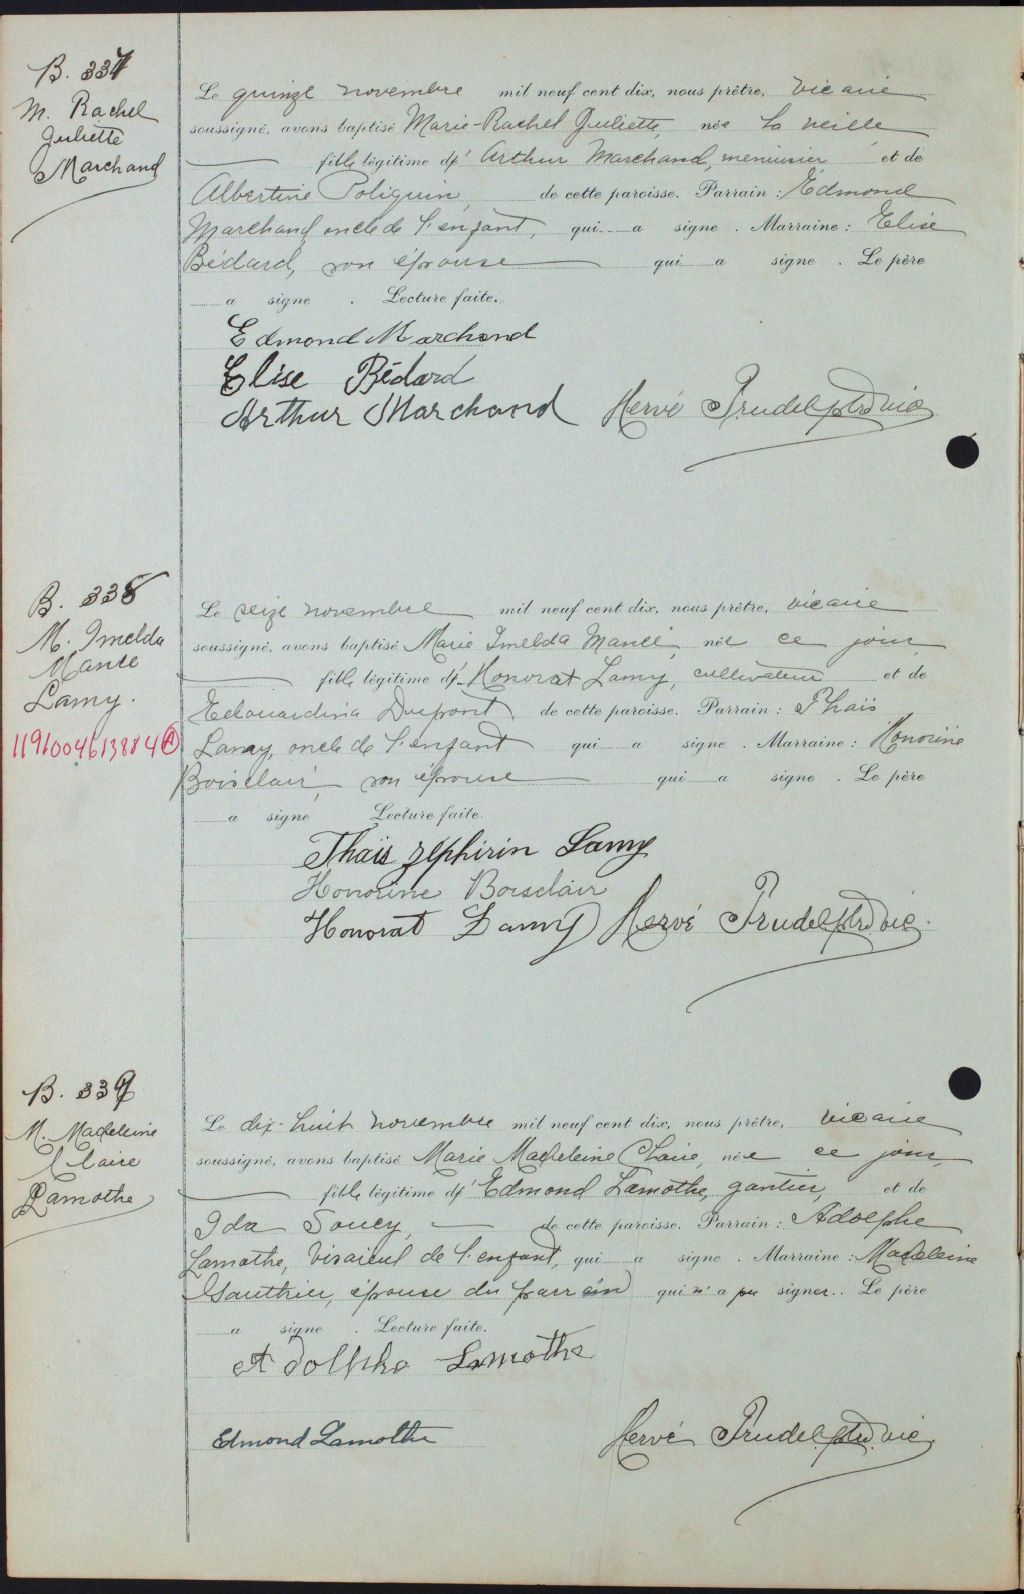 B. 337
M. Rachel
Juliette
Marchand
Le quinze novembre mil neuf cent dix, nous prêtre, vicaire
soussigné, avons baptisé Marie-Rachel Juliette, née la veille
fille légitime d' Arthur Marchand, menuisier et de
Albertine Poliquin, de cette paroisse. Parrain : Edmond
Marchand, oncle de l'enfant, qui a signé . Marraine : Elise
Bédard, son épouse qui a signé . Le père
a signé . Lecture faite.
Edmond Marchand
Elise Bédard
Arthur Marchand Hervé Prudel ptre vic.
B. 338
M. Imelda
Mance
Lamy.
1191004613884 A
Le seize novembre mil neuf cent dix, nous prêtre, vicaire
soussigné, avons baptisé Marie Imelda Mance, née ce jour,
fille légitime d' Honorat Lamy, cultivateur et de
Edouardina Dupont de cette paroisse. Parrain : Thaïs
Lamy, oncle de l'enfant qui a signé . Marraine : Honorine
Boisclair, son épouse qui a signé . Le père
a signé Lecture faite.
Thaïs Zéphirin Lamy
Honorine Boisclair
Honorat Lamy Hervé Prudel ptre vic.
B. 339
M. Madeleine
Claire
Lamothe
Le dix-huit novembre mil neuf cent dix, nous prêtre, vicaire
soussigné, avons baptisé Marie Madeleine Claire, née ce jour,
fille légitime d' Edmond Lamothe, gantier, et de
Ida Soucy, de cette paroisse. Parrain : Adolphe
Lamothe, bisaïeul de l'enfant, qui a signé . Marraine : Madeleine
Gauthier, épouse du parrain qui n'a pu signer. Le père
a signé . Lecture faite.
Adolphe Lamothe
Edmond Lamothe Hervé Prudel ptre vic.